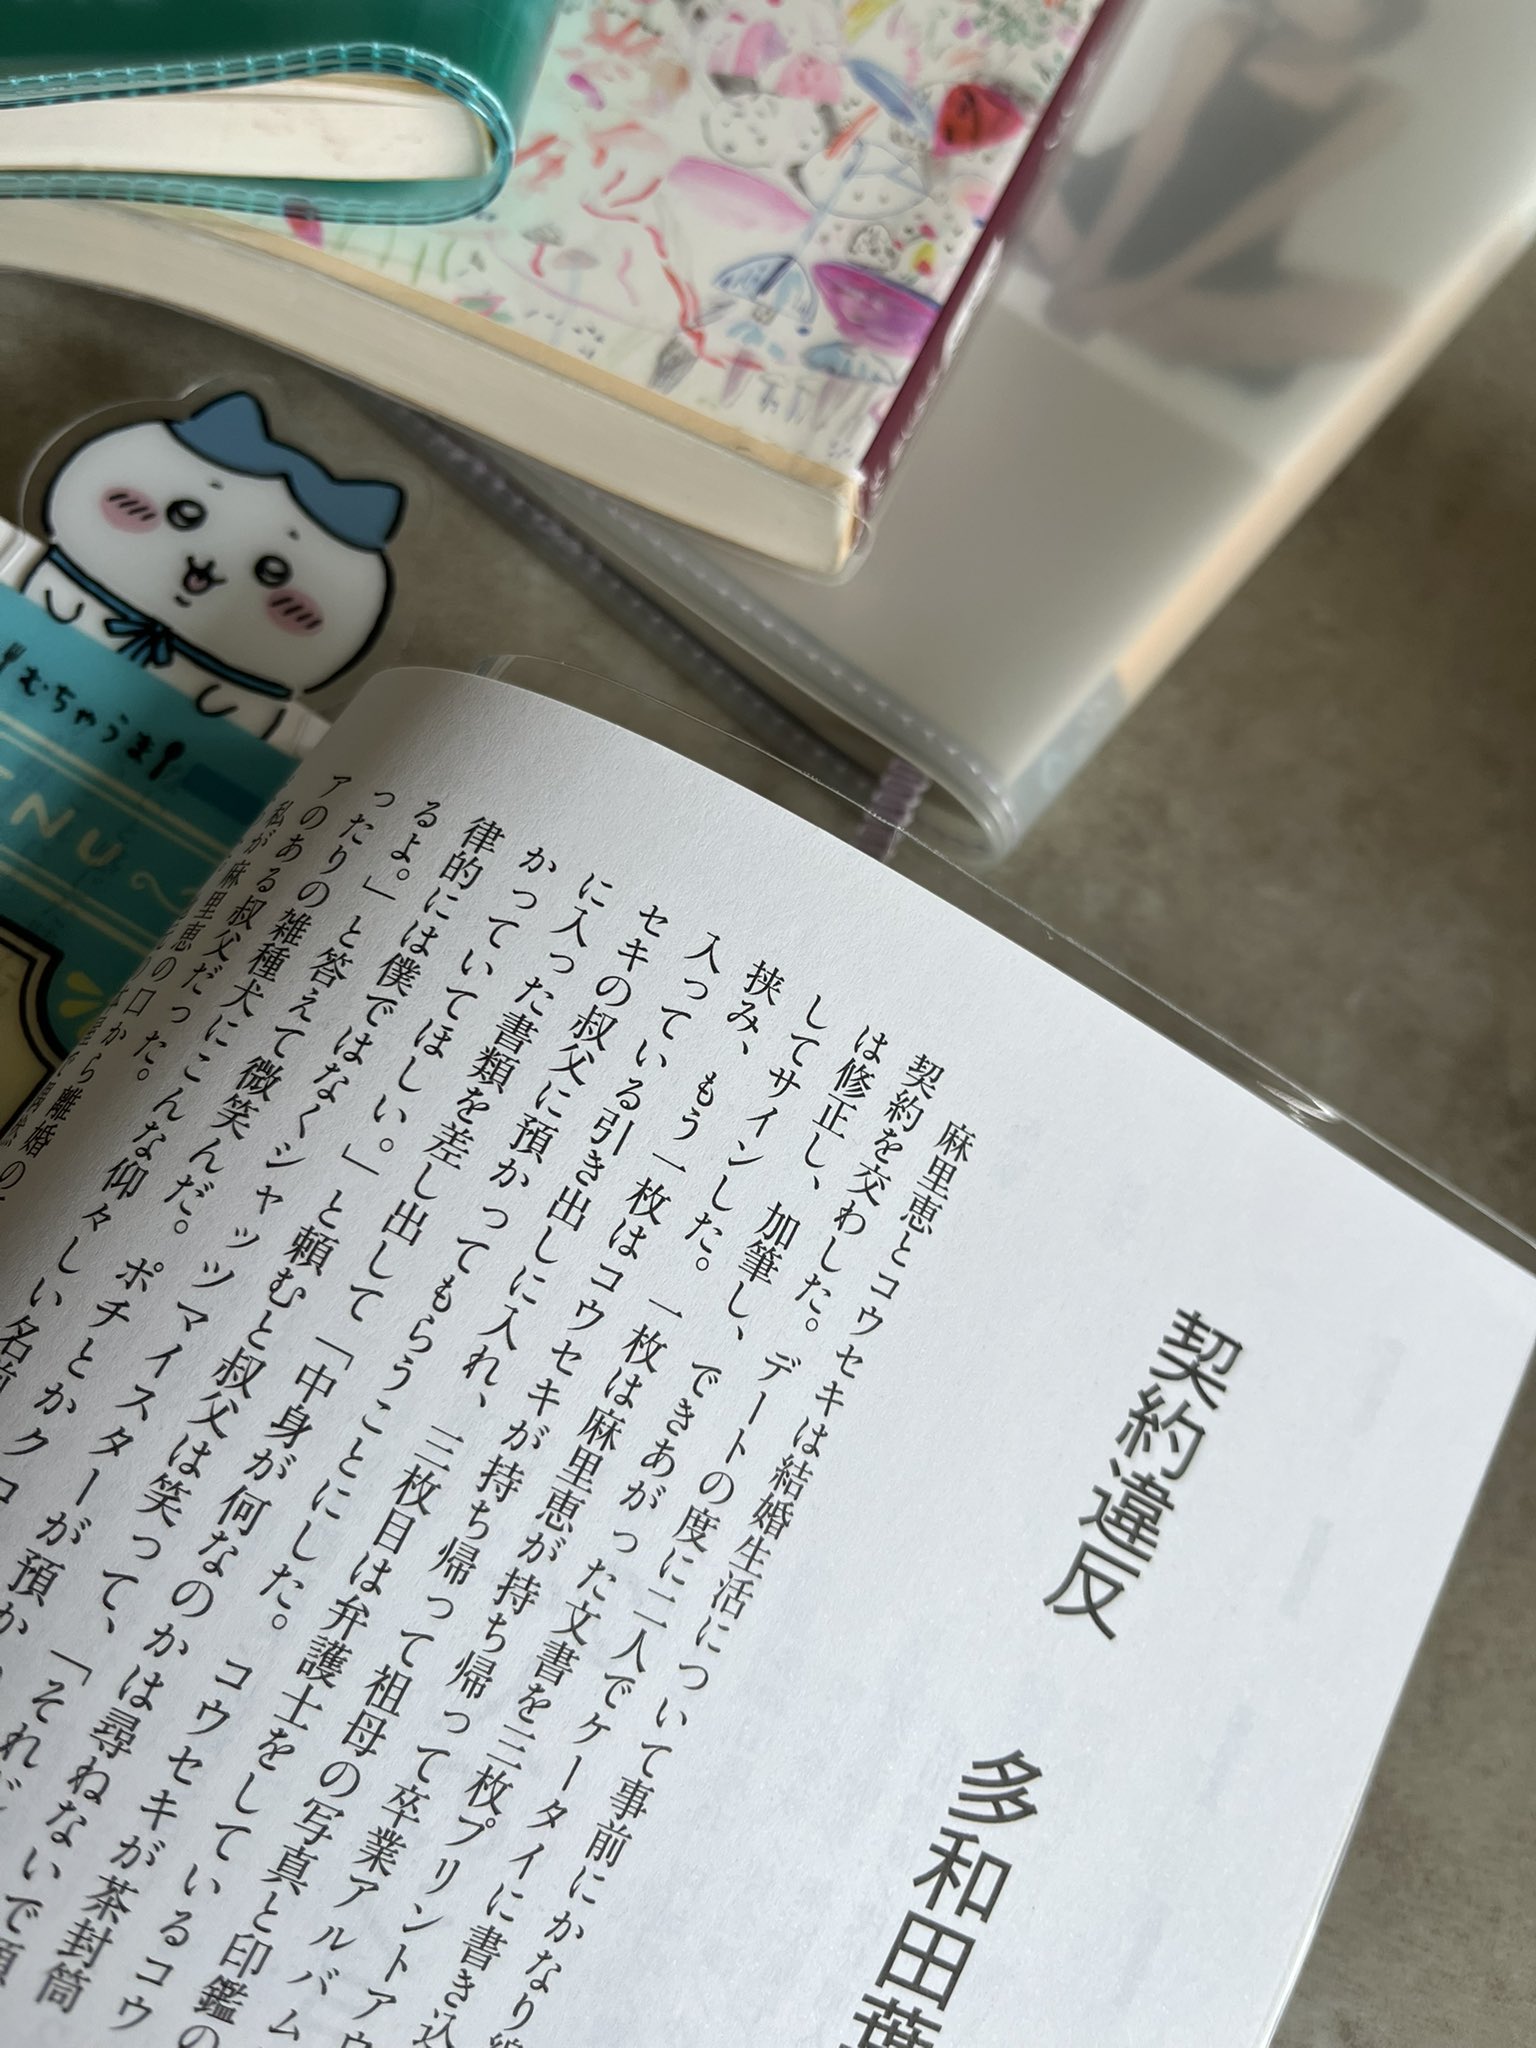 契約違反　多和田葉
麻里恵とコウセキは結婚生活について事前にかなり
契約を交わした。デートの度に二人でケータイに書き込
は修正し、加筆し、できあがった文書を三枚プリントアウ
してサインした。一枚は麻里恵が持ち帰って卒業アルバム
挟み、もう一枚はコウセキが持ち帰って祖母の写真と印鑑の
入っている引き出しに入れ、三枚目は弁護士をしているコウ
セキの叔父に預かってもらうことにした。コウセキが茶封筒
に入った書類を差し出して「中身が何なのかは尋ねないで預
かっていてほしい。」と頼むと叔父は笑って、「それ
律的には僕ではなくシャッツマイスターが預か
るよ。」と答えて微笑んだ。ポチとかクロ
ったりの雑種犬にこんな仰々しい名前
アのある叔父だった。
私が麻里恵の口から離婚の
むちゃうま